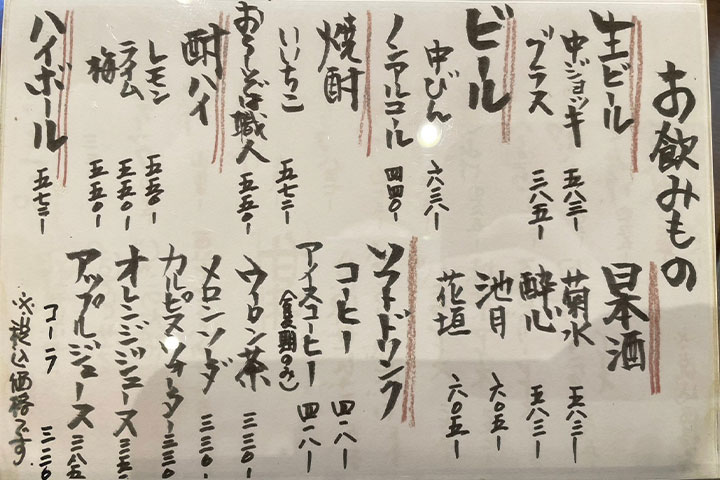 お飲みもの
生ビール
中ジョッキ 五八三-
グラス 三八五-
ビール
中びん 六三八-
ノンアルコール 四四〇-
焼酎
いいちこ 五七二-
おろしそば職人 五五〇-
酎ハイ
レモン 五五〇-
ライム 五五〇-
梅 五五〇-
ハイボール 五七二-
日本酒
菊水 五八三-
酔心 五八三-
池月 六〇五-
花垣 六〇五-
ソフトドリンク
コーヒー 四一八-
アイスコーヒー 四一八-
(夏期のみ)
ウーロン茶 三三〇-
メロンソーダ 三三〇-
カルピスウォーター 三三〇
オレンジジュース 三五一
アップルジュース 三八五
コーラ 三三〇
※税込価格です。